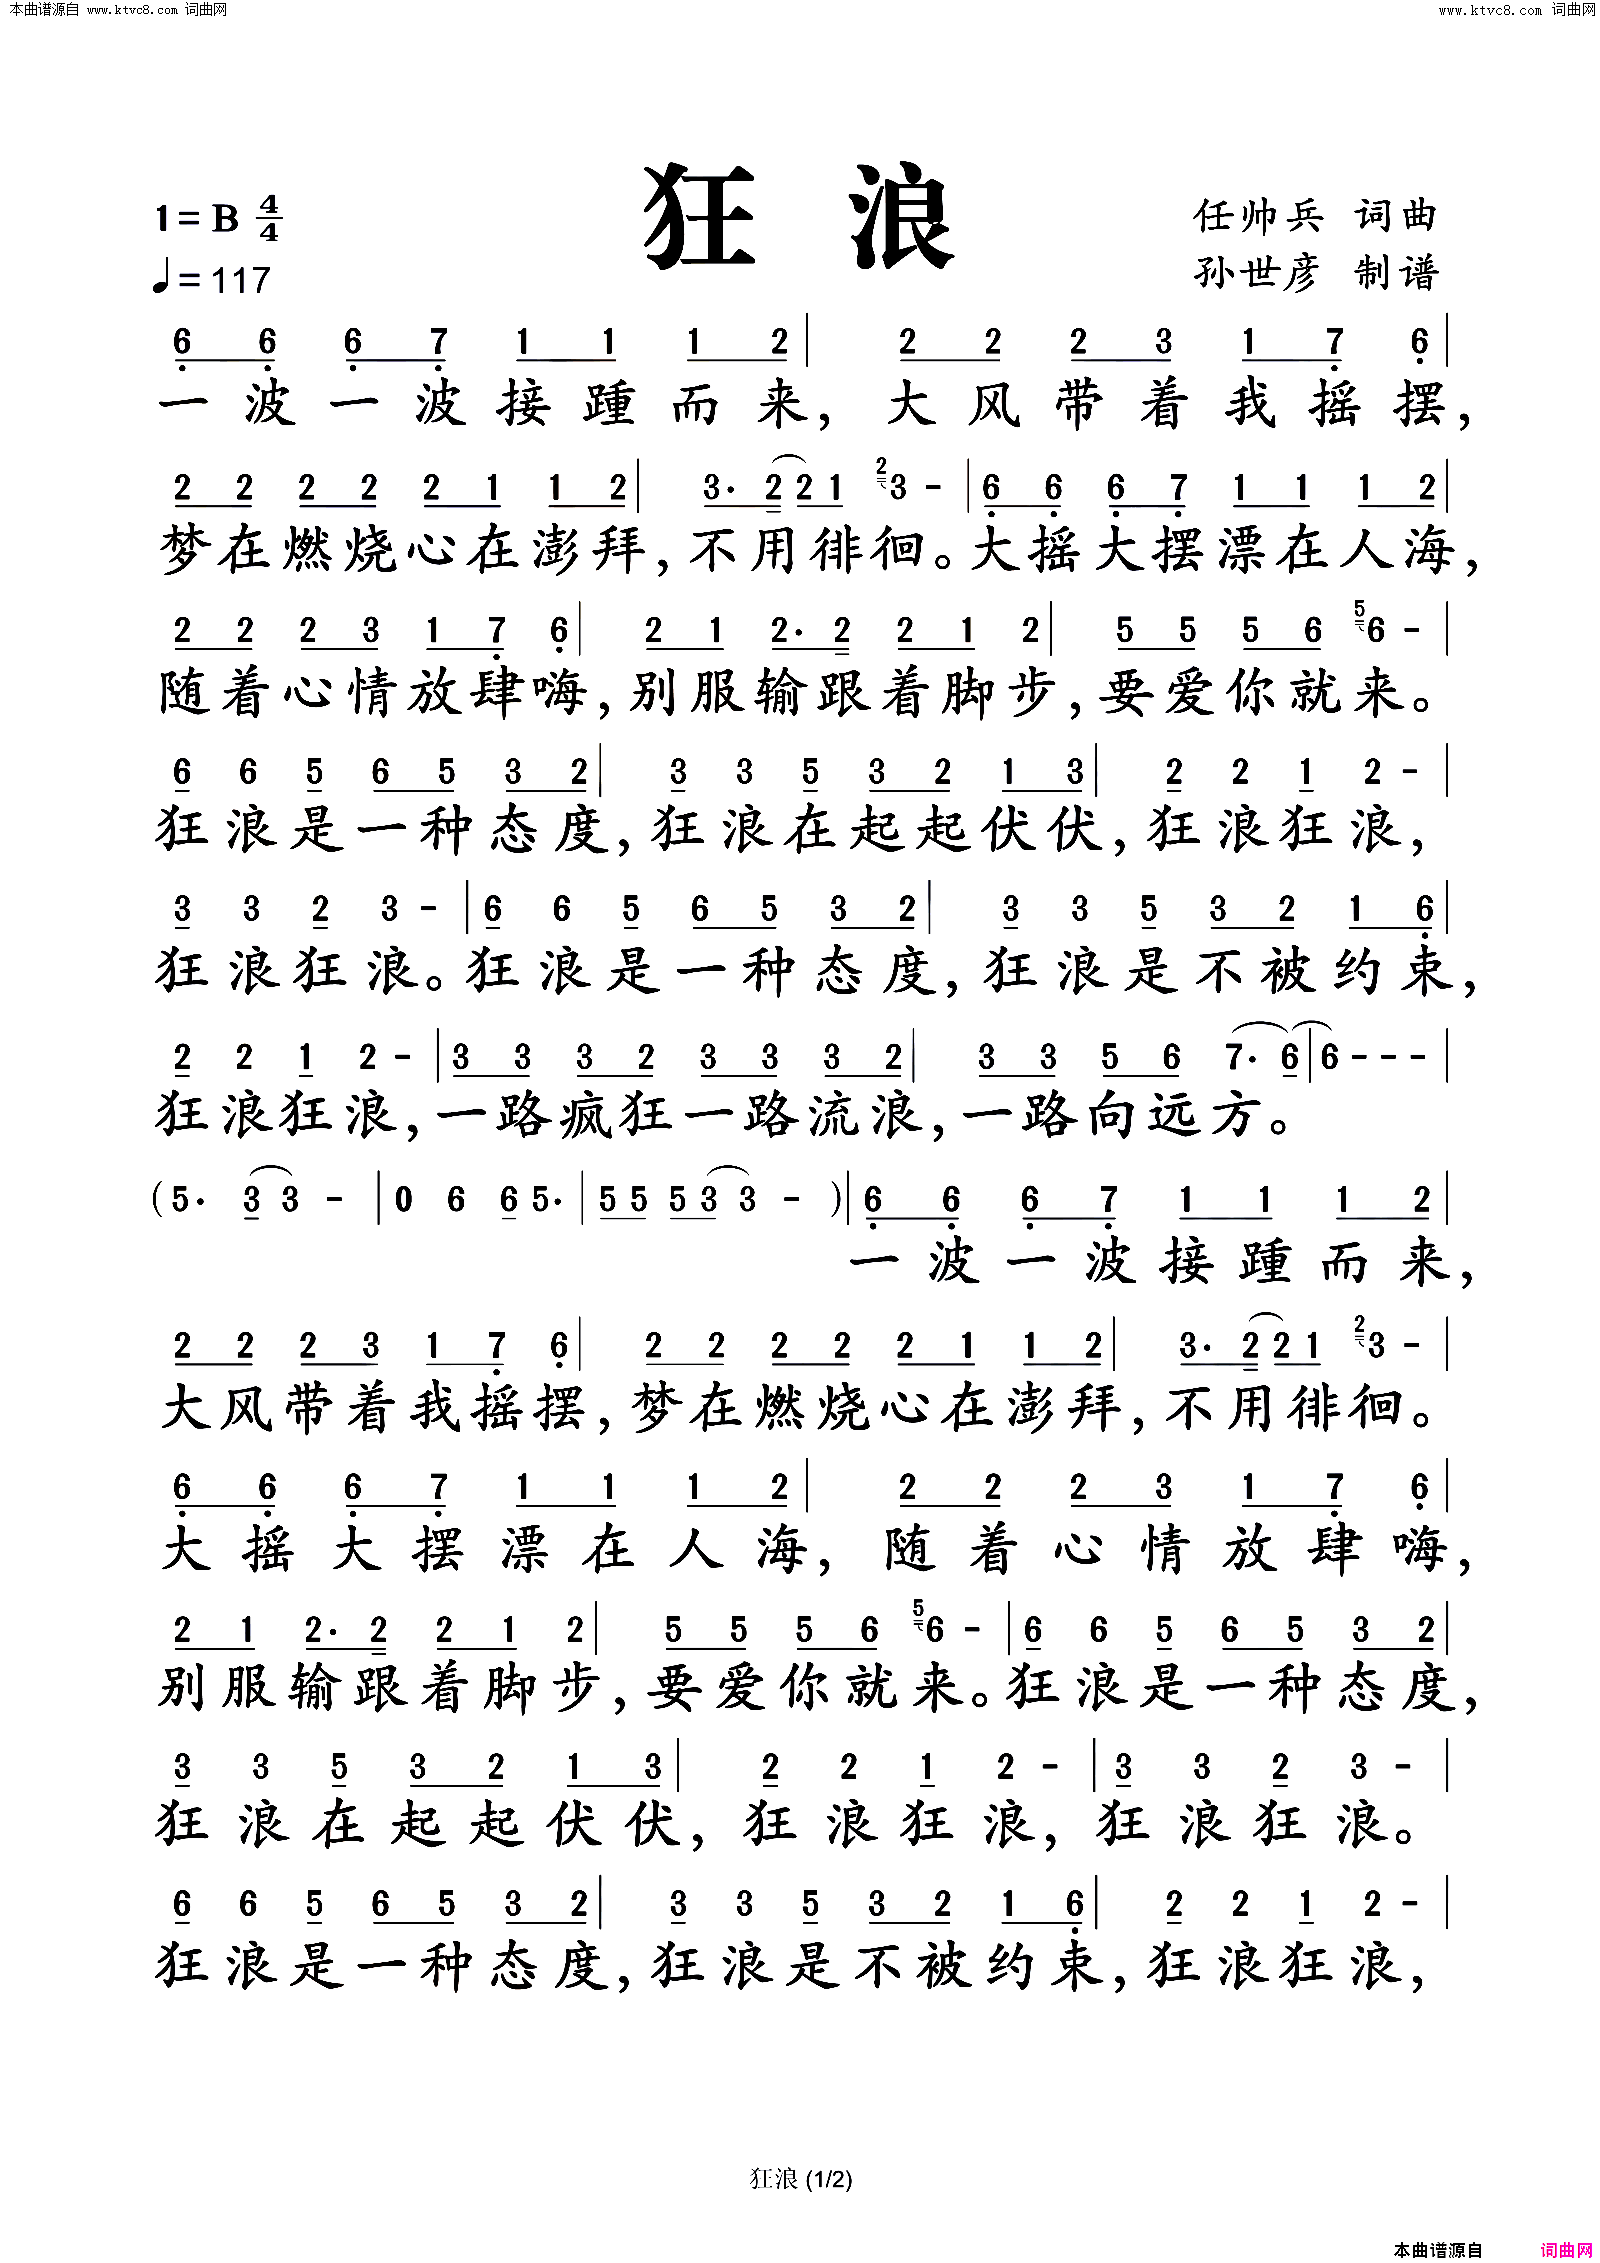 本曲谱源自 www.ktvc8.com 词曲网
www.ktvc8.com 词曲网
狂 浪
1= B 4/4
♩= 117
任帅兵 词曲
孙世彦 制谱
6 6 6 7 1 1 1 2 | 2 2 2 3 1 7 6 |
一波一波接踵而来, 大风带着我摇摆,
2 2 2 2 2 1 1 2 | 3. 2 2 1 2 3 - | 6 6 6 7 1 1 1 2 |
梦在燃烧心在澎拜, 不用徘徊。大摇大摆漂在人海,
2 2 2 3 1 7 6 | 2 1 2. 2 2 1 2 | 5 5 5 6 5 6 - |
随着心情放肆嗨, 别服输跟着脚步, 要爱你就来。
6 6 5 6 5 3 2 | 3 3 5 3 2 1 3 | 2 2 1 2 - |
狂浪是一种态度, 狂浪在起起伏伏, 狂浪狂浪,
3 3 2 3 - | 6 6 5 6 5 3 2 | 3 3 5 3 2 1 6 |
狂浪狂浪。狂浪是一种态度, 狂浪是不被约束,
2 2 1 2 - | 3 3 3 2 3 3 3 2 | 3 3 5 6 7. 6 | 6 - - - |
狂浪狂浪, 一路疯狂一路流浪, 一路向远方。
( 5. 3 3 - | 0 6 6 5. | 5 5 5 3 3 - ) | 6 6 6 7 1 1 1 2 |
一波一波接踵而来,
2 2 2 3 1 7 6 | 2 2 2 2 2 1 1 2 | 3. 2 2 1 2 3 - |
大风带着我摇摆, 梦在燃烧心在澎拜, 不用徘徊。
6 6 6 7 1 1 1 2 | 2 2 2 3 1 7 6 |
大摇大摆漂在人海, 随着心情放肆嗨,
2 1 2. 2 2 1 2 | 5 5 5 6 5 6 - | 6 6 5 6 5 3 2 |
别服输跟着脚步, 要爱你就来。狂浪是一种态度,
3 3 5 3 2 1 3 | 2 2 1 2 - | 3 3 2 3 - |
狂浪在起起伏伏, 狂浪狂浪, 狂浪狂浪。
6 6 5 6 5 3 2 | 3 3 5 3 2 1 6 | 2 2 1 2 - |
狂浪是一种态度, 狂浪是不被约束, 狂浪狂浪,
狂浪 (1/2)
本曲谱源自 词曲网